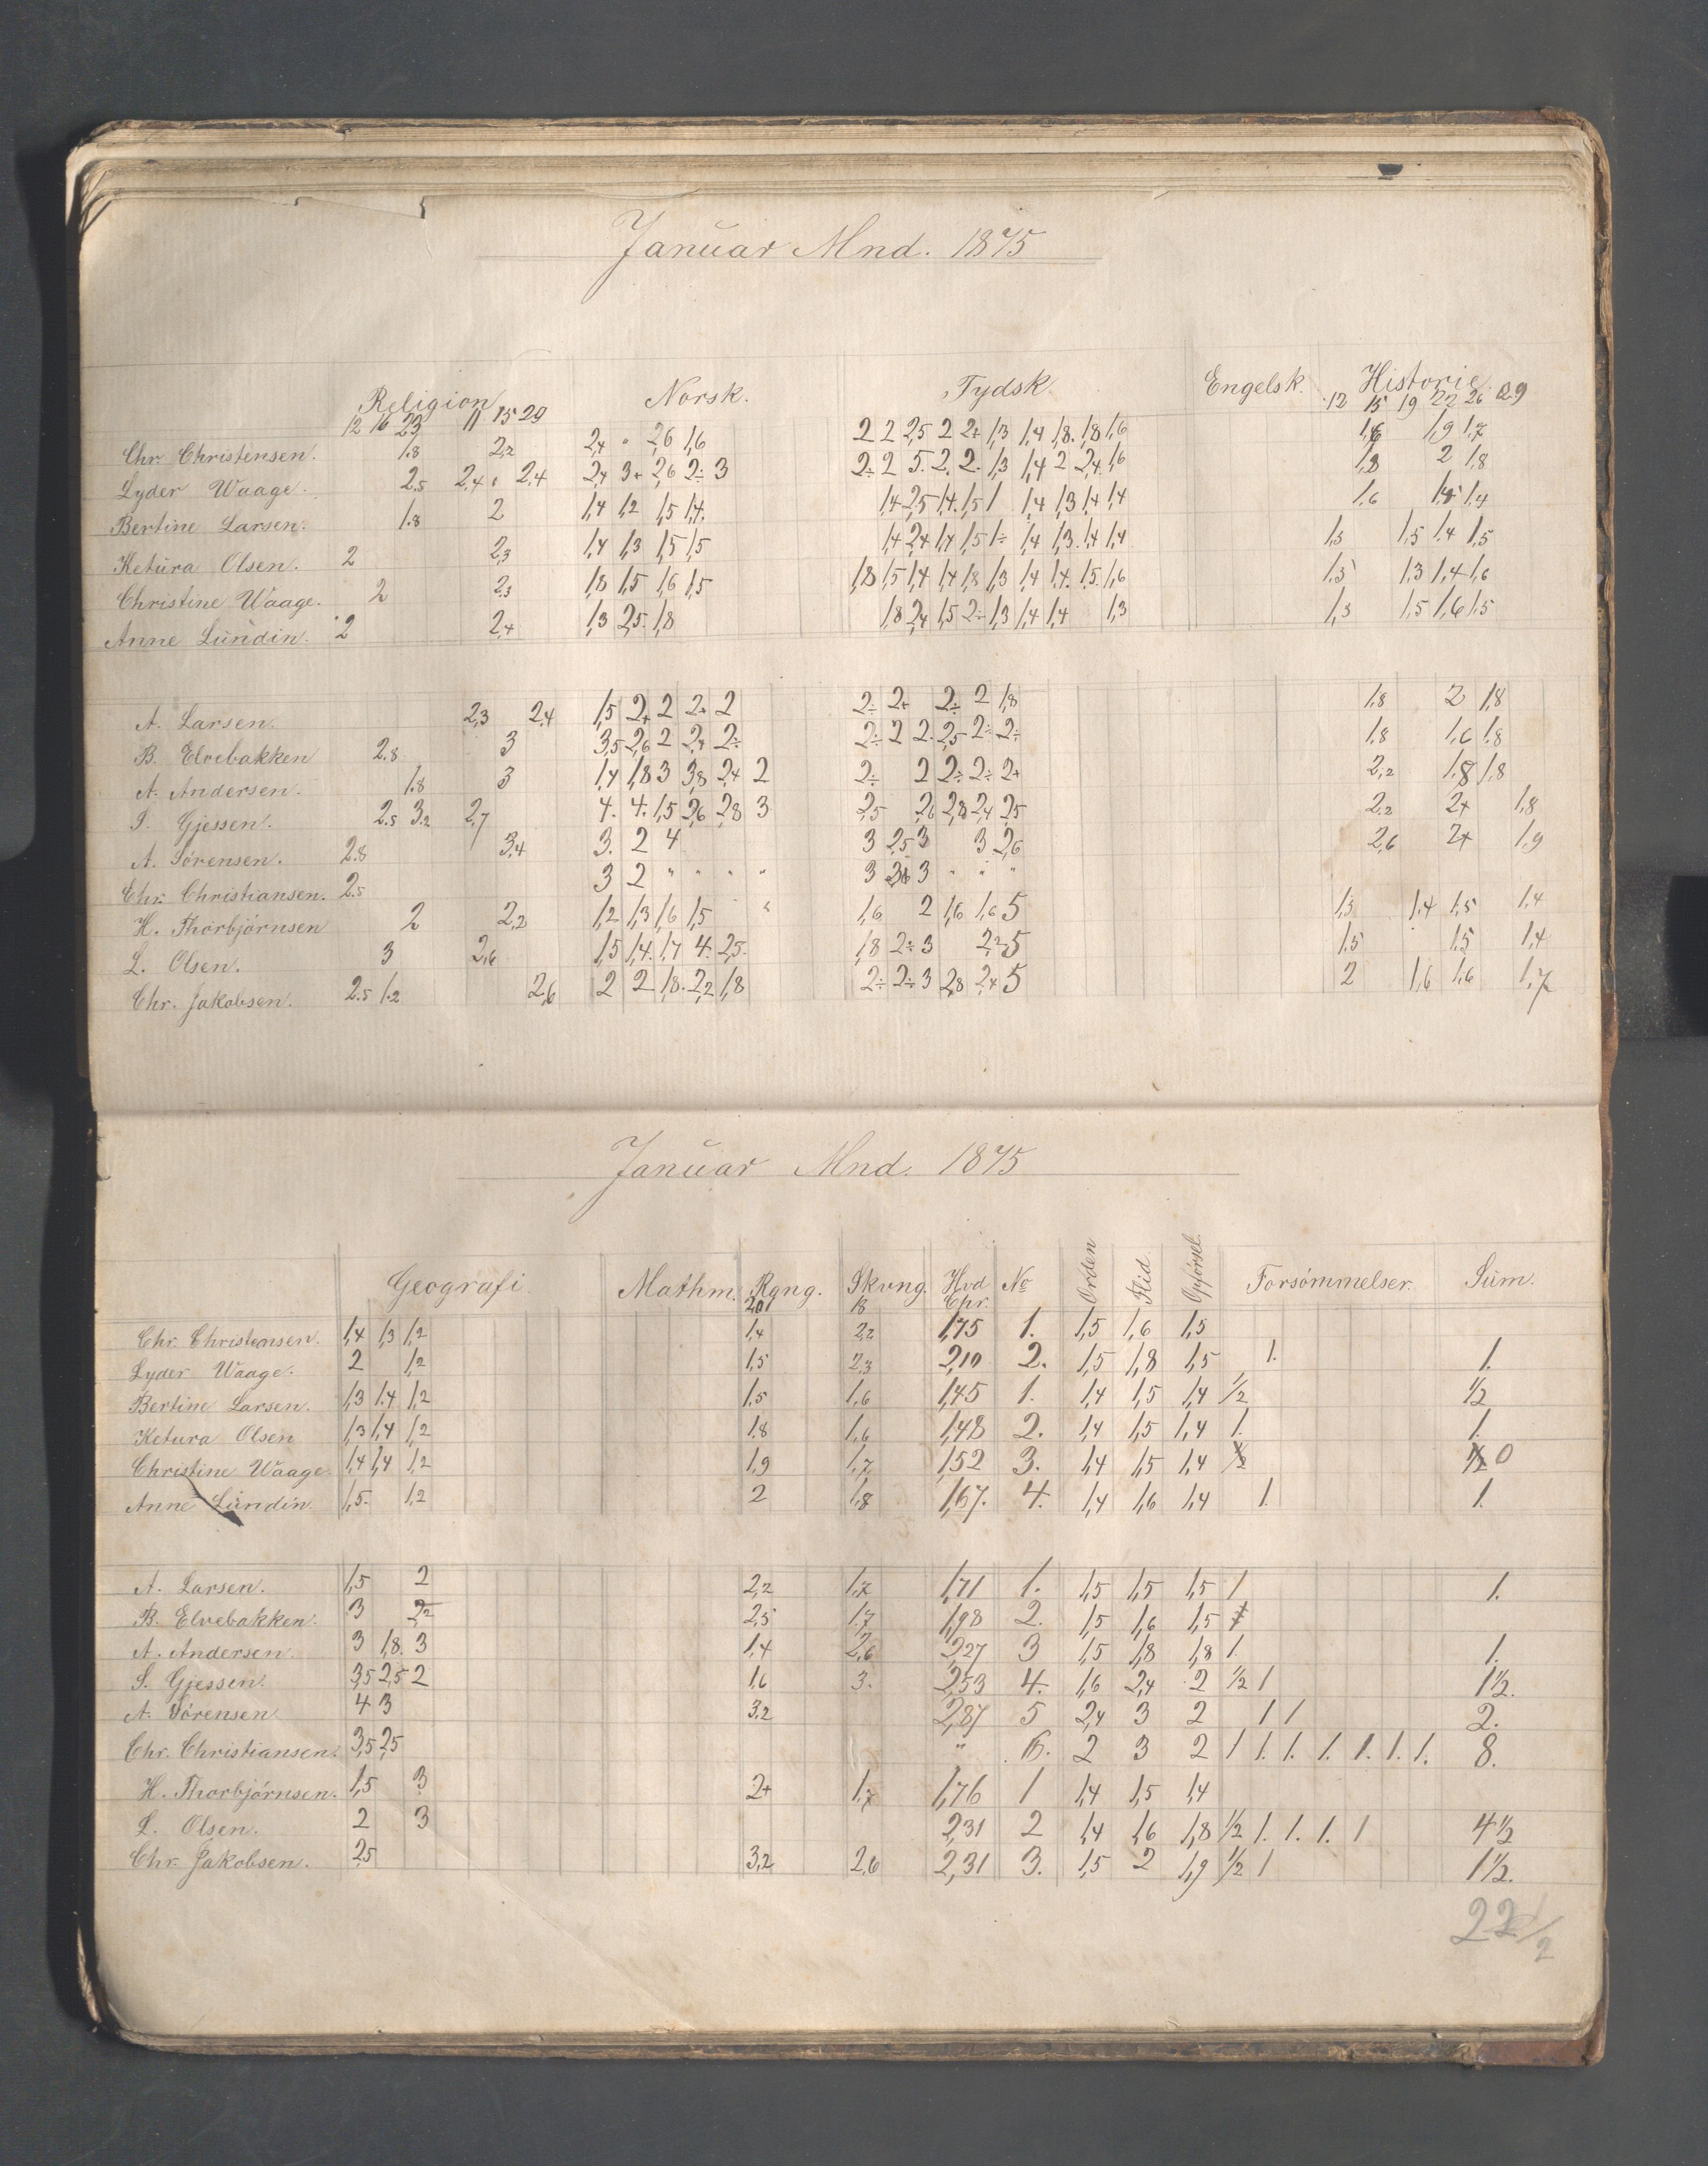 Januar Mnd. 1875
Religion. Norsk. Tydsk. Engelsk. Historie.
12 16 23 11 15 29 12 15 19 22 26 29
Chr. Christensen. 1.8 2,2 2,4 " 2,6 1,6 2 2 2,5 2 2+ 1,3 1,4 1,8. 1,8 1,6 1,6 1,9 1,7
Lyder Waage. 2.5 2,4 2,4 2,4 3+ 2,6 2÷ 3 2÷ 2 5. 2. 2. 1,3 1,4 2 2,4 1,6 1,8 2 1,8
Bertine Larsen. 1.8 2 1,4 1,2 1,5 1,4. 1,4 2,5 1,4. 1,5 1 1,4 1,3 1,4 1,4 1,6 1,5 1,4
Ketura Olsen. 2 2,3 1,4 1,3 1,5 1,5 1,4 2,4 1,4 1,5 1÷ 1,4 1,3. 1,4 1,4 1,5 1,5 1,4 1,5
Christine Waage. 2 2.3 1,8 1,5 1,6 1,5 1,8 1,5 1,4 1,4 1,8 1,3 1,4 1,4. 1,5. 1,6 1,5 1,3 1,4 1,6
Anne Lundin. 2 2,4 1,3 2,5. 1,8 1,8 2,4 1,5 2÷ 1,3 1,4 1,4 1,3 1,3 1,5 1,6 1,5
A. Larsen. 2,3 2,4 1,5 2+ 2 2+ 2 2÷ 2+ 2÷ 2 1,8 1,8 2 1,8
B. Elvebakken 2.8 3 3,5 2,6 2 2,4 2÷ 2÷ 2 2. 2,5 2÷ 2÷ 1,8 1,6 1,8
A. Andersen. 1.8 3 1,4 1,8 3 3,8 2,4 2 2÷ 2 2÷ 2÷ 2+ 2,2 1,8 1,8
S. Gjessen. 2.5 3.2 2,7 4. 4. 1,5 2,6 2,8 3 2,5 2,6 2,8 2,4 2,5 2,2 2+ 1,8
A. Sörensen. 2.8 3,4 3. 2 4 3 2,5 3 3 2,6 2,6 2+ 1,9
Chr. Christiansen. 2.5 3 2 " " " " 3 3 " " "
H. Thorbjörnsen 2 2,2 1,2 1,3 1,6 1,5 " 1,6 2 1,6 1,6 5 1,3 1,4 1,5 1,4
L. Olsen. 3 2,6 1,5 1,4. 1,7 4. 2,5. 1,8 2÷ 3 2,2 5 1,5 1,5 1,4
Chr. Jakobsen. 2.5 1.2 2,6 2 2 1,8. 2,2 1,8 2÷ 2÷ 3 2,8 2,4 5 2 1,6 1,6 1,7
Januar Mnd. 1875
Geografi. Mathm. Rgng. Skvng. Hvd Chr. No Orden Flid Opförsel. Forsömmelser. Sum.
20 18
Chr. Christensen. 1,4 1,3 1,2 1,4 2,2 1,75 1. 1,5 1,6 1,5
Lyder Waage. 2 1,2 1,5 2,3 2,10 2. 1,5 1,8 1,5 1. 1.
Bertine Larsen. 1,3 1.4 1,2 1,5 1,6 1,45 1. 1,4 1,5 1,4 1/2 1/2
Ketura Olsen 1,3 1,4 1,2 1,8 1,6 1,48 2. 1,4 1,5 1,4 1. 1.
Christine Waage. 1,4 1,4 1,2 1,9 1,7 1,52 3. 1,4 1,5 1,4 1/2 1/2 0
Anne Lundin. 1,5. 1,2 2 1,8 1,67. 4. 1,4 1,6 1,4 1. 1.
A. Larsen. 1,5 2 2,2 1,7 1,71 1. 1,5 1,5 1,5 1 1.
B. Elvebakken. 3 2,2 2,5 1,7 1,98 2. 1,5 1,6 1,5 1
A. Andersen. 3 1,8. 3 1,4 2,6 2,27 3 1,5 1,8 1,8 1. 1.
S. Gjessen. 3,5 2,5 2 1,6 3. 2,53 4. 1,6 2,4 2 1/2 1 1 1/2.
A. Sörensen 4 3 3,2 2,87 5 2,4 3 2 1 1 2.
Chr. Christiansen. 3,5 2,5 " 6. 2 3 2 1 1. 1. 1. 1. 1. 1. 8.
H. Thorbjörnsen. 1,5 3 2+ 1,7 1,76 1 1,4 1,5 1,4
L. Olsen. 2 3 2,31 2 1,4 1,6 1,8 1/2 1. 1. 1. 1 4 1/2
Chr. Jakobsen. 2,5 3,2 2,6 2,31 3. 1,5 2 1,9 1/2 1 1 1/2.
22 1/2